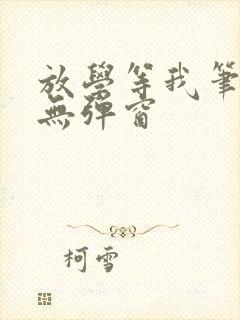 放學等我筆
無彈窗
柯雪